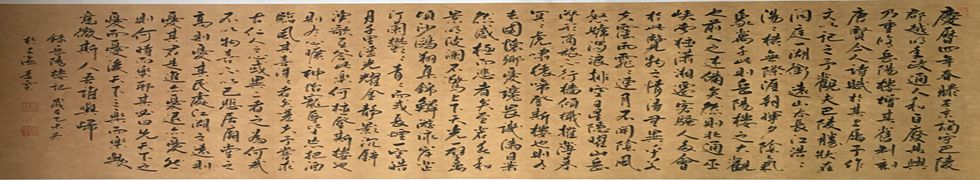 慶曆四年春滕子京謫守巴陵
郡越明年政通人和百廢具興
乃重修岳陽樓增其舊制刻
唐賢今人詩賦於其上屬予作
文以記之予觀夫巴陵勝狀在
洞庭一湖銜遠山吞長江浩浩
湯湯橫無際涯朝暉夕陰氣
象萬千此則岳陽樓之大觀
也前人之述備矣然則北通巫
峽南極瀟湘遷客騷人多會
於此覽物之情得無異乎若
夫霪雨霏霏連月不開陰風
怒號濁浪排空日星隱曜山岳
潛形商旅不行檣傾楫摧薄暮
冥冥虎嘯猿啼登斯樓也則有
去國懷鄉憂讒畏譏滿目蕭
然感極而悲者矣至若春和
景明波瀾不驚上下天光一碧萬
頃沙鷗翔集錦鱗游泳岸芷
汀蘭郁郁青青而或長煙一空皓
月千里浮光耀金靜影沉璧
漁歌互答此樂何極登斯樓也
則有心曠神怡寵辱皆忘把酒
臨風其喜洋洋者矣嗟夫予嘗求
古仁人之心或異二者之為何哉
不以物喜不以己悲居廟堂之
高則憂其民處江湖之遠則
憂其君是進亦憂退亦憂然
則何時而樂耶其必曰先天下之
憂而憂後天下之樂而樂歟
噫微斯人吾誰與歸
錄岳陽樓記
於上海